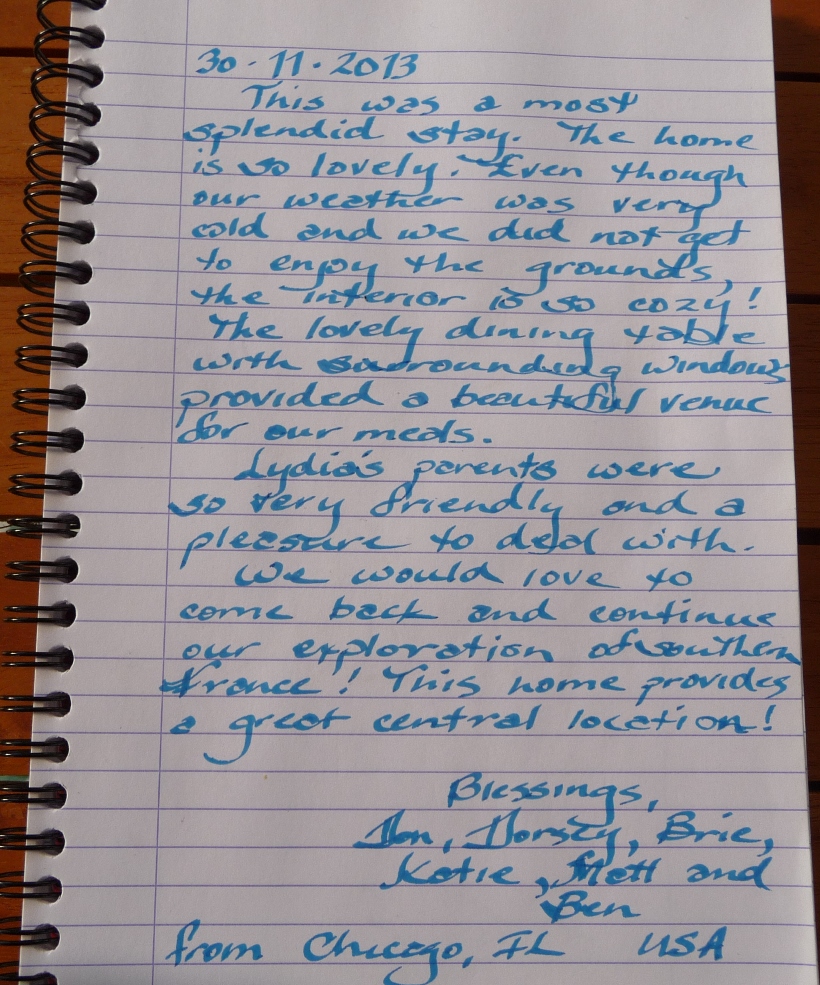 30-11-2013
This was a most
splendid stay. The home
is so lovely. Even though
our weather was very
cold and we did not get
to enjoy the grounds,
the interior is so cozy!
The lovely dining table
with surrounding windows
provided a beautiful venue
for our meals.
Lydia's parents were
so very friendly and a
pleasure to deal with.
We would love to
come back and continue
our exploration of southern
France! This home provides
a great central location!
Blessings,
Brie,
Katie, Matt and
Ben
from Chicago, IL USA